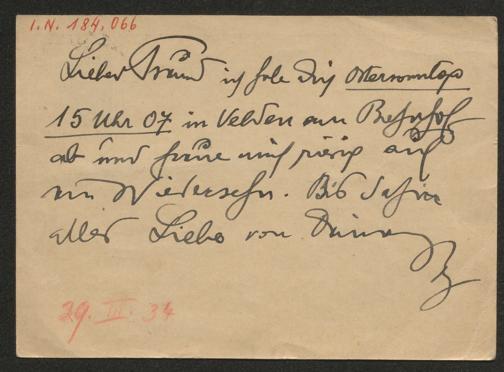 I.N. 184.066
Lieber Freund ich hole Dich Ostersonntag
15 Uhr 07 in Velden am Bahnhof
ab und freue mich riesig auf
ein Wiedersehn. Bis dahin
alles Liebe von Deinem
29. III. 34